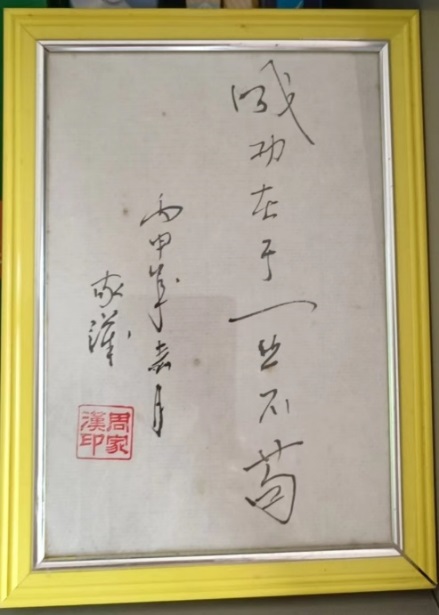 成功在于一丝不苟
丙申年嘉月
家漢
周家
漢印